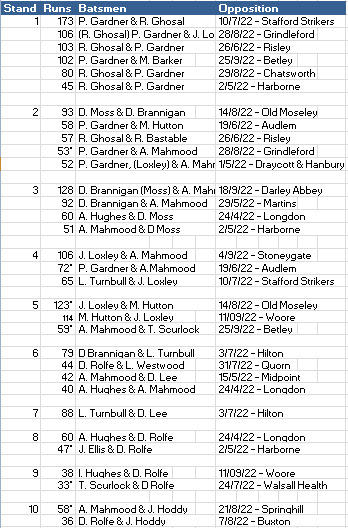 Stand Runs Batsmen Opposition
1 173 P. Gardner & R. Ghosal 10/7/22 - Stafford Strikers
106 (R. Ghosal) P. Gardner & J. Lo 28/8/22 - Grindleford
103 R. Ghosal & P. Gardner 26/6/22 - Risley
102 P. Gardner & M. Barker 25/9/22 - Betley
80 R. Ghosal & P. Gardner 29/8/22 - Chatsworth
45 R. Ghosal & P. Gardner 2/5/22 - Harborne
2 93 D. Moss & D. Brannigan 14/8/22 - Old Moseley
58 P. Gardner & M. Hutton 19/6/22 - Audlem
57 R. Ghosal & R. Bastable 26/6/22 - Risley
53* P. Gardner & A. Mahmood 28/8/22 - Grindleford
52 P. Gardner, (Loxley) & A. Mahr 1/5/22 - Draycott & Hanbury
3 128 D. Brannigan (Moss) & A. Mah 18/9/22 - Darley Abbey
92 D. Brannigan & A. Mahmood 29/5/22 - Martins
60 A. Hughes & D. Moss 24/4/22 - Longdon
51 A. Mahmood & D Moss 2/5/22 - Harborne
4 106 J. Loxley & A. Mahmood 4/9/22 - Stoneygate
72* P. Gardner & A.Mahmood 19/6/22 - Audlem
65 L. Turnbull & J. Loxley 10/7/22 - Stafford Strikers
5 123* J. Loxley & M. Hutton 14/8/22 - Old Moseley
114 M. Hutton & J. Loxley 11/09/22 - Woore
59* A. Mahmood & T. Scurlock 25/9/22 - Betley
6 79 D Brannigan & L. Turnbull 3/7/22 - Hilton
44 D. Rolfe & L. Westwood 31/7/22 - Quorn
42 A. Mahmood & D. Lee 15/5/22 - Midpoint
40 A. Hughes & A. Mahmood 24/4/22 - Longdon
7 88 L. Turnbull & D. Lee 3/7/22 - Hilton
8 60 A. Hughes & D. Rolfe 24/4/22 - Longdon
47* J. Ellis & D. Rolfe 2/5/22 - Harborne
9 38 I. Hughes & D. Rolfe 11/09/22 - Woore
33* T. Scurlock & D Rolfe 24/7/22 - Walsall Health
10 58* A. Mahmood & J. Hoddy 21/8/22 - Springhill
36 D. Rolfe & J. Hoddy 7/8/22 - Buxton